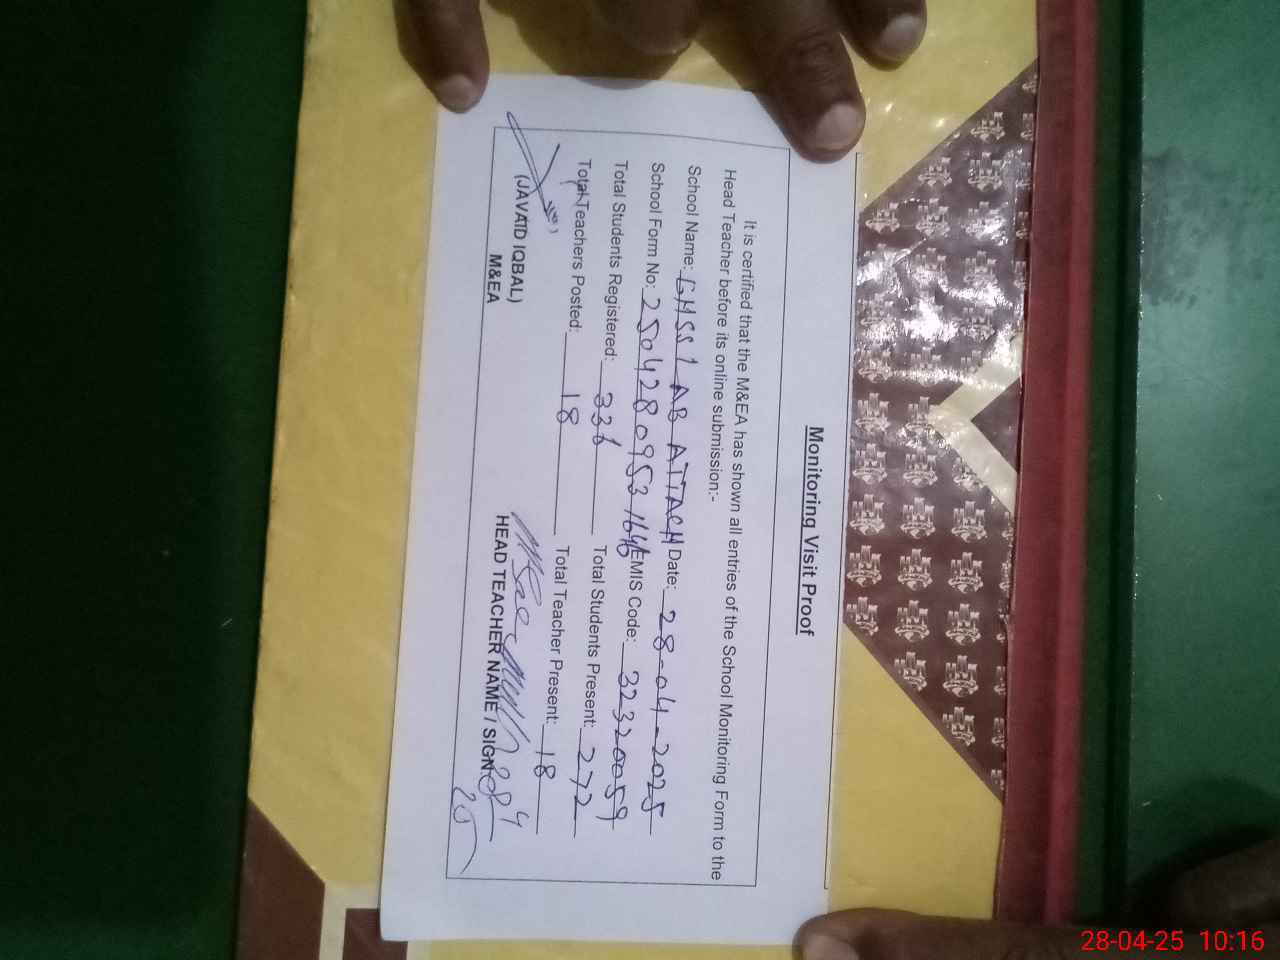 Monitoring Visit Proof
It is certified that the M&EA has shown all entries of the School Monitoring Form to the
Head Teacher before its online submission:-
School Name: GHSS LAB ATTACH Date: 28-04-2025
School Form No: 2504280953164 EMIS Code: 32320059
Total Students Registered: 336 Total Students Present: 272
Total Teachers Posted: 18 Total Teacher Present: 18
(JAVAID IQBAL)
M&EA
HEAD TEACHER NAME / SIGN
28-04-25 10:16